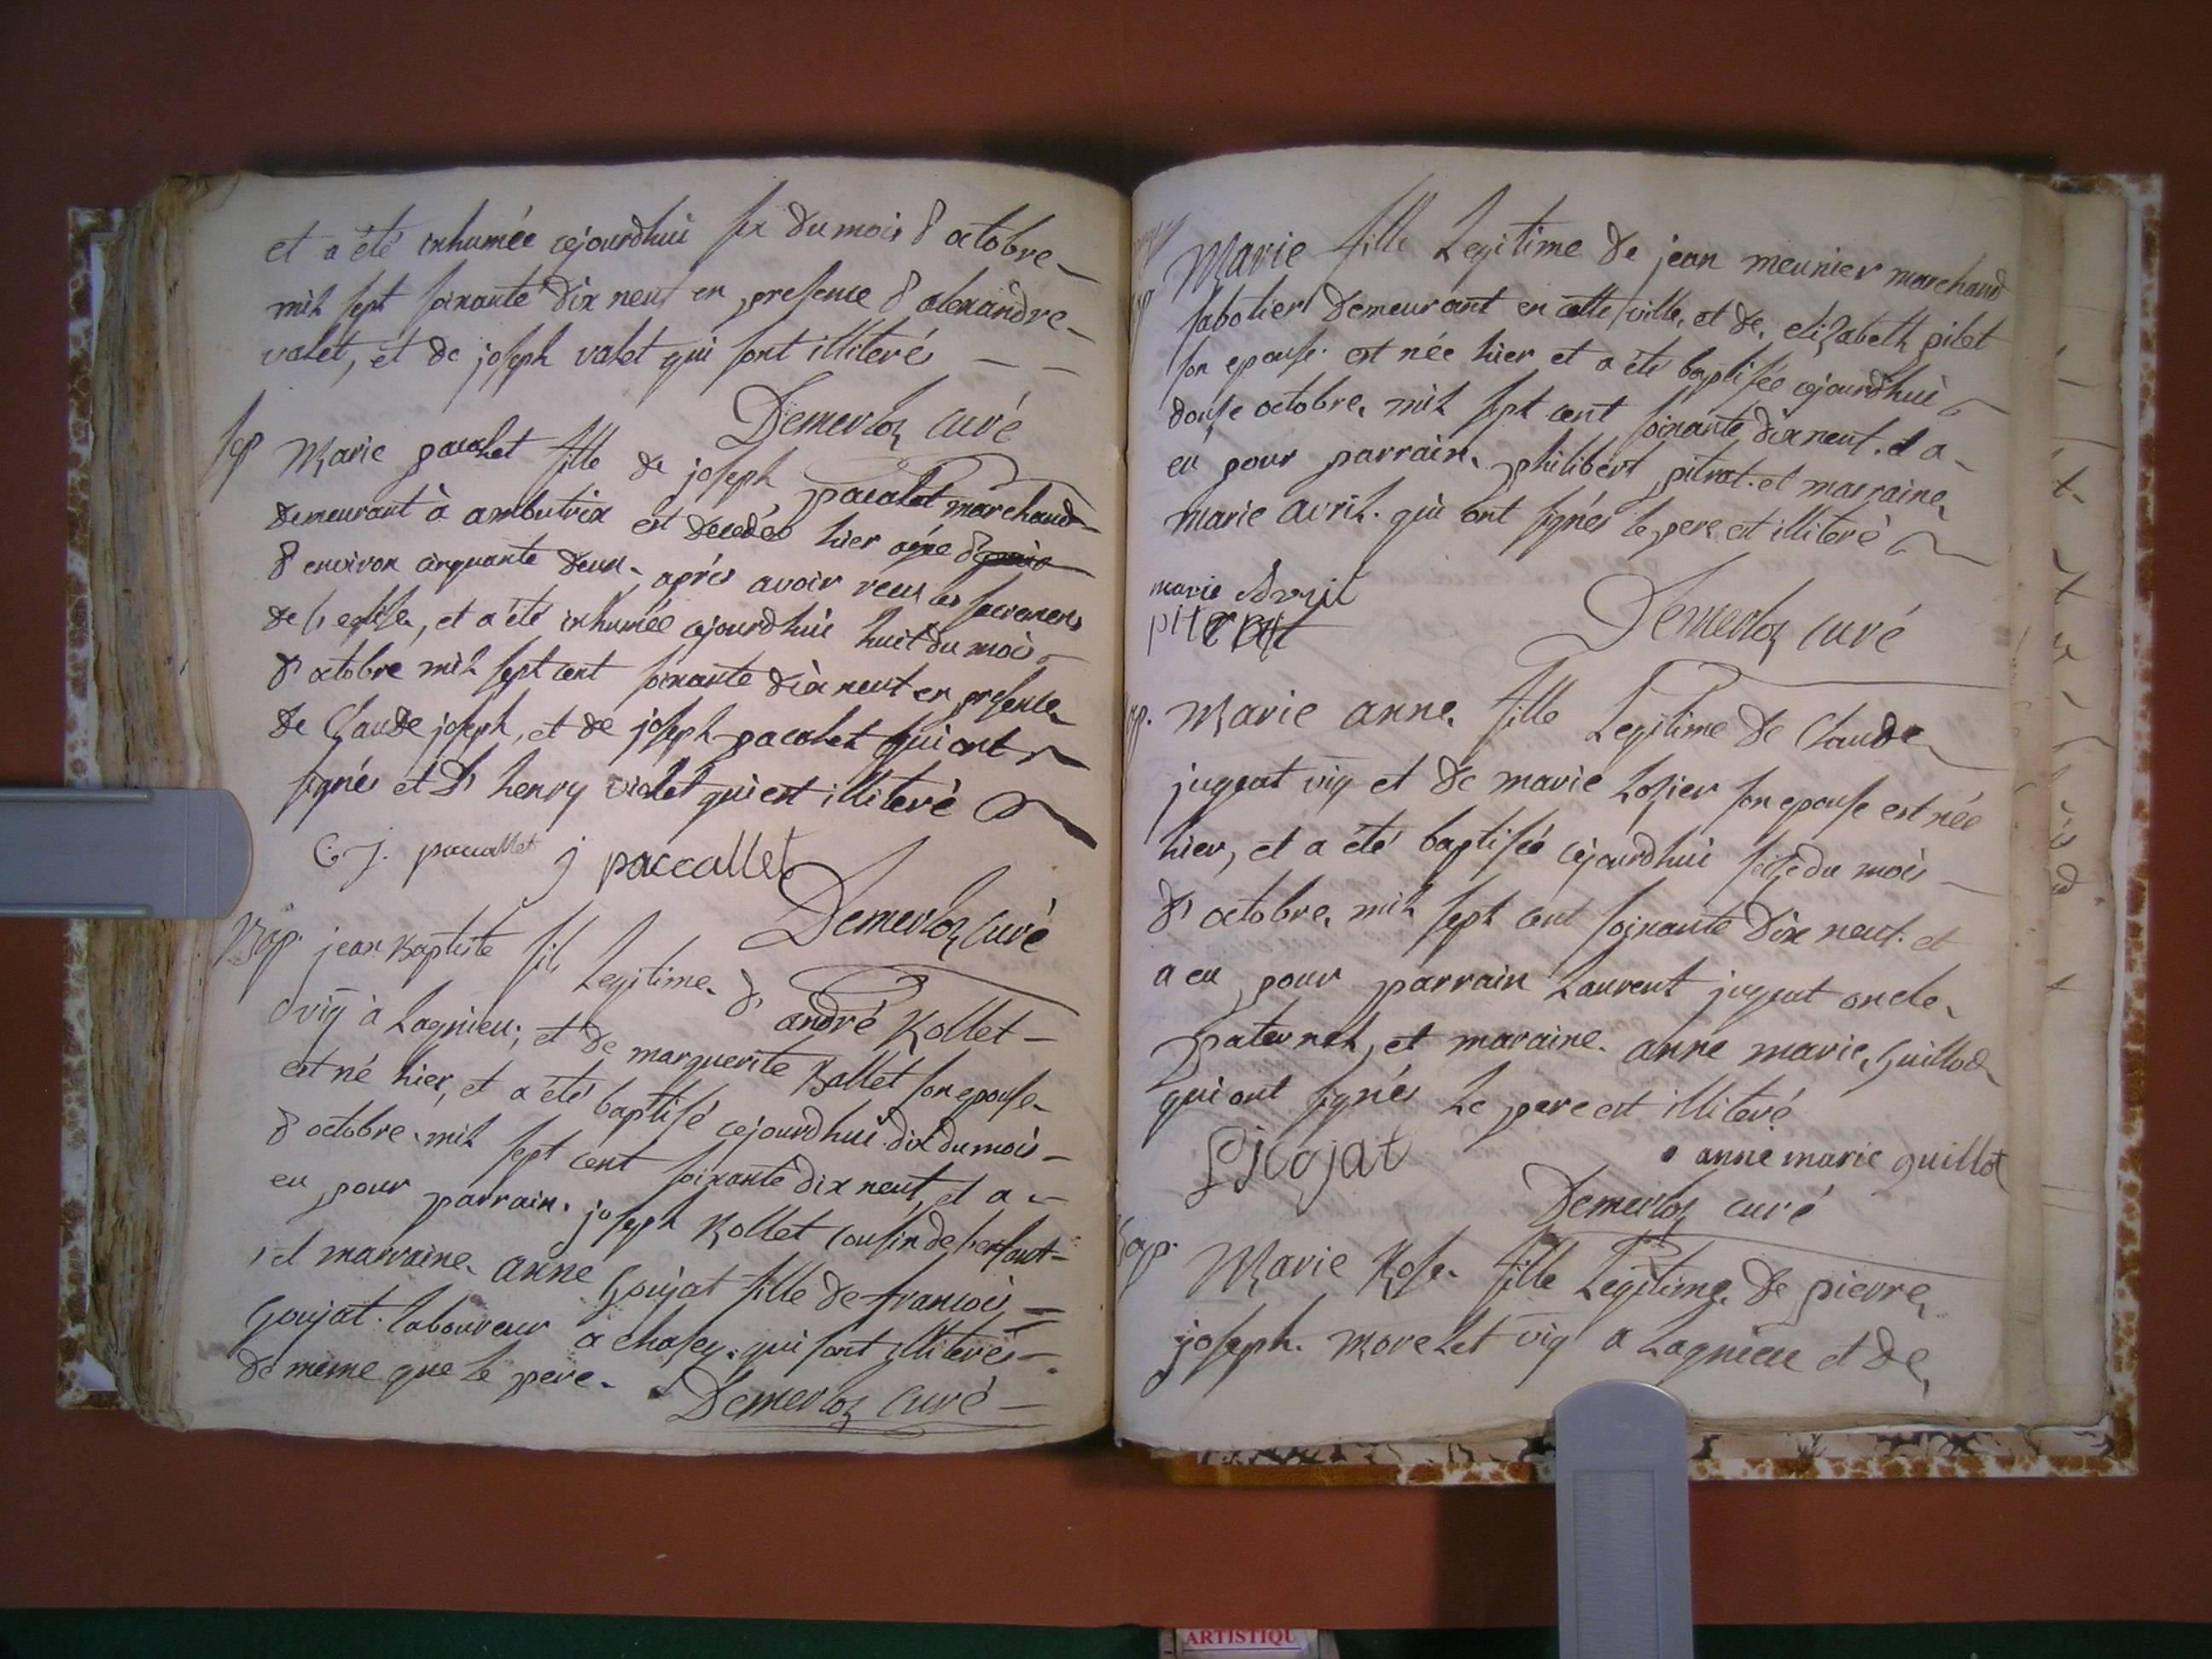 et a été inhumée cejourdhui six du mois d'octobre
mil sept soixante dix neuf en presence d'alexandre
valet, et de joseph valet qui sont illiterés
Demerloz curé
sep Marie pacalet fille de joseph pacalet marchand
demeurant à ambutrix est decedée hier agée
d'environ cinquante deux. après avoir reçu les sacremens
de l'eglise, et a été inhumée cejourdhui huit du mois
d'octobre mil sept cent soixante dix neuf en presence
de Claude joseph, et de joseph pacalet qui ont
signés et d' henry violet qui est illiteré
C. J. paccallet j paccallet
Demerloz curé
Bap. jean Baptiste fils Legitime d' andré Rollet
vig à Lagnieu; et de marguerite Ballet son epouse
est né hier, et a été baptisé cejourdhui dix du mois
d'octobre mil sept cent soixante dix neuf, et a
eu pour parrain. joseph Rollet cousin de l'enfant
et marraine anne goujat fille de francois
goujat. laboureur a chasey. qui sont illiterés
de meme que le pere. Demerloz curé
Marie fille Legitime de jean meunier marchand
sabotier demeurant en cette ville, et de elizabeth pilot
son epouse. est née hier et a été baptisée cejourdhui
douse octobre mil sept cent soixante dix neuf. et a
eu pour parrain philibert pitrat. et marraine
marie avril. qui ont signés le pere est illiteré
marie Avril
pitrat
Demerloz curé
ap. Marie anne fille Legitime de Claude
jugeat vig et de marie Lozier son epouse est née
hier, et a été baptisée cejourdhui seize du mois
d'octobre mil sept cent soixante dix neuf. et
a eu pour parrain Laurent jugeat oncle
paternel, et maraine anne marie guillod
qui ont signés le pere est illiteré
anne marie guillot
Demerloz curé
Bap. Marie Rose fille Legitime de pierre
joseph. morelet vig a Lagnieu et de
ARTISTIQU